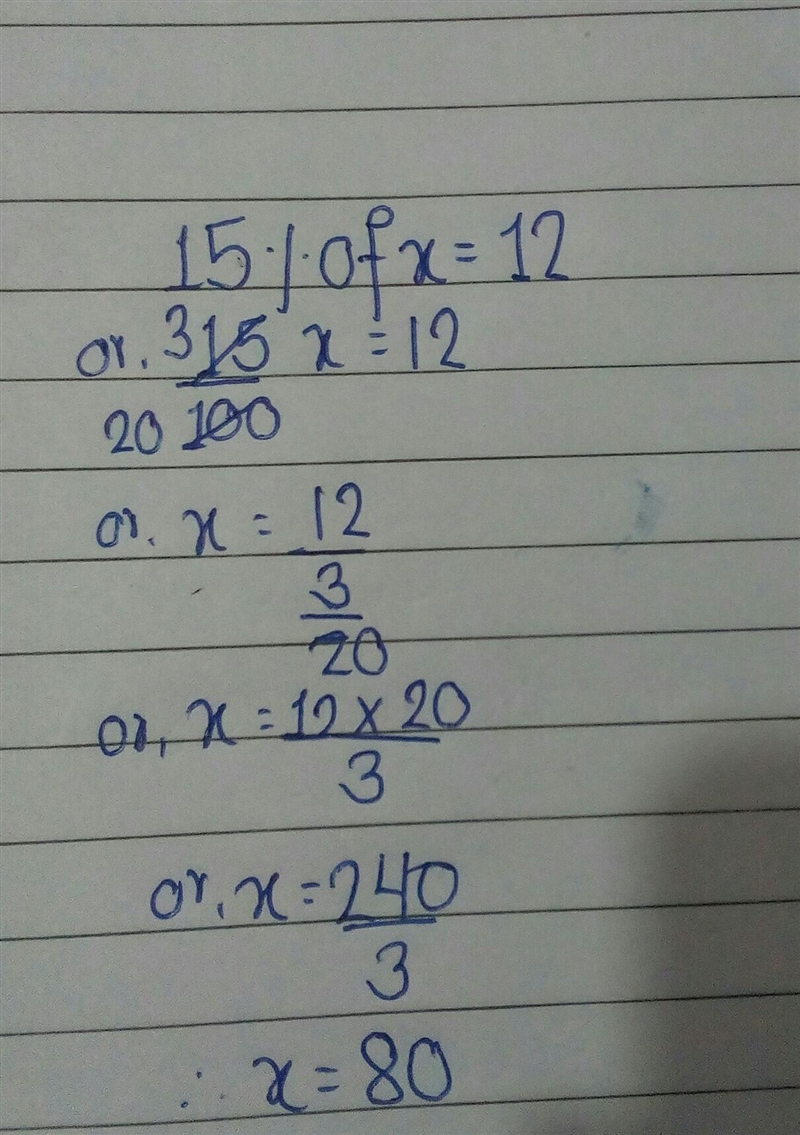 15% of x = 12
or. 3 15 x = 12
20 100
or. x = 12
3
20
or, x = 12 x 20
3
or, x = 240
3
∴ x = 80